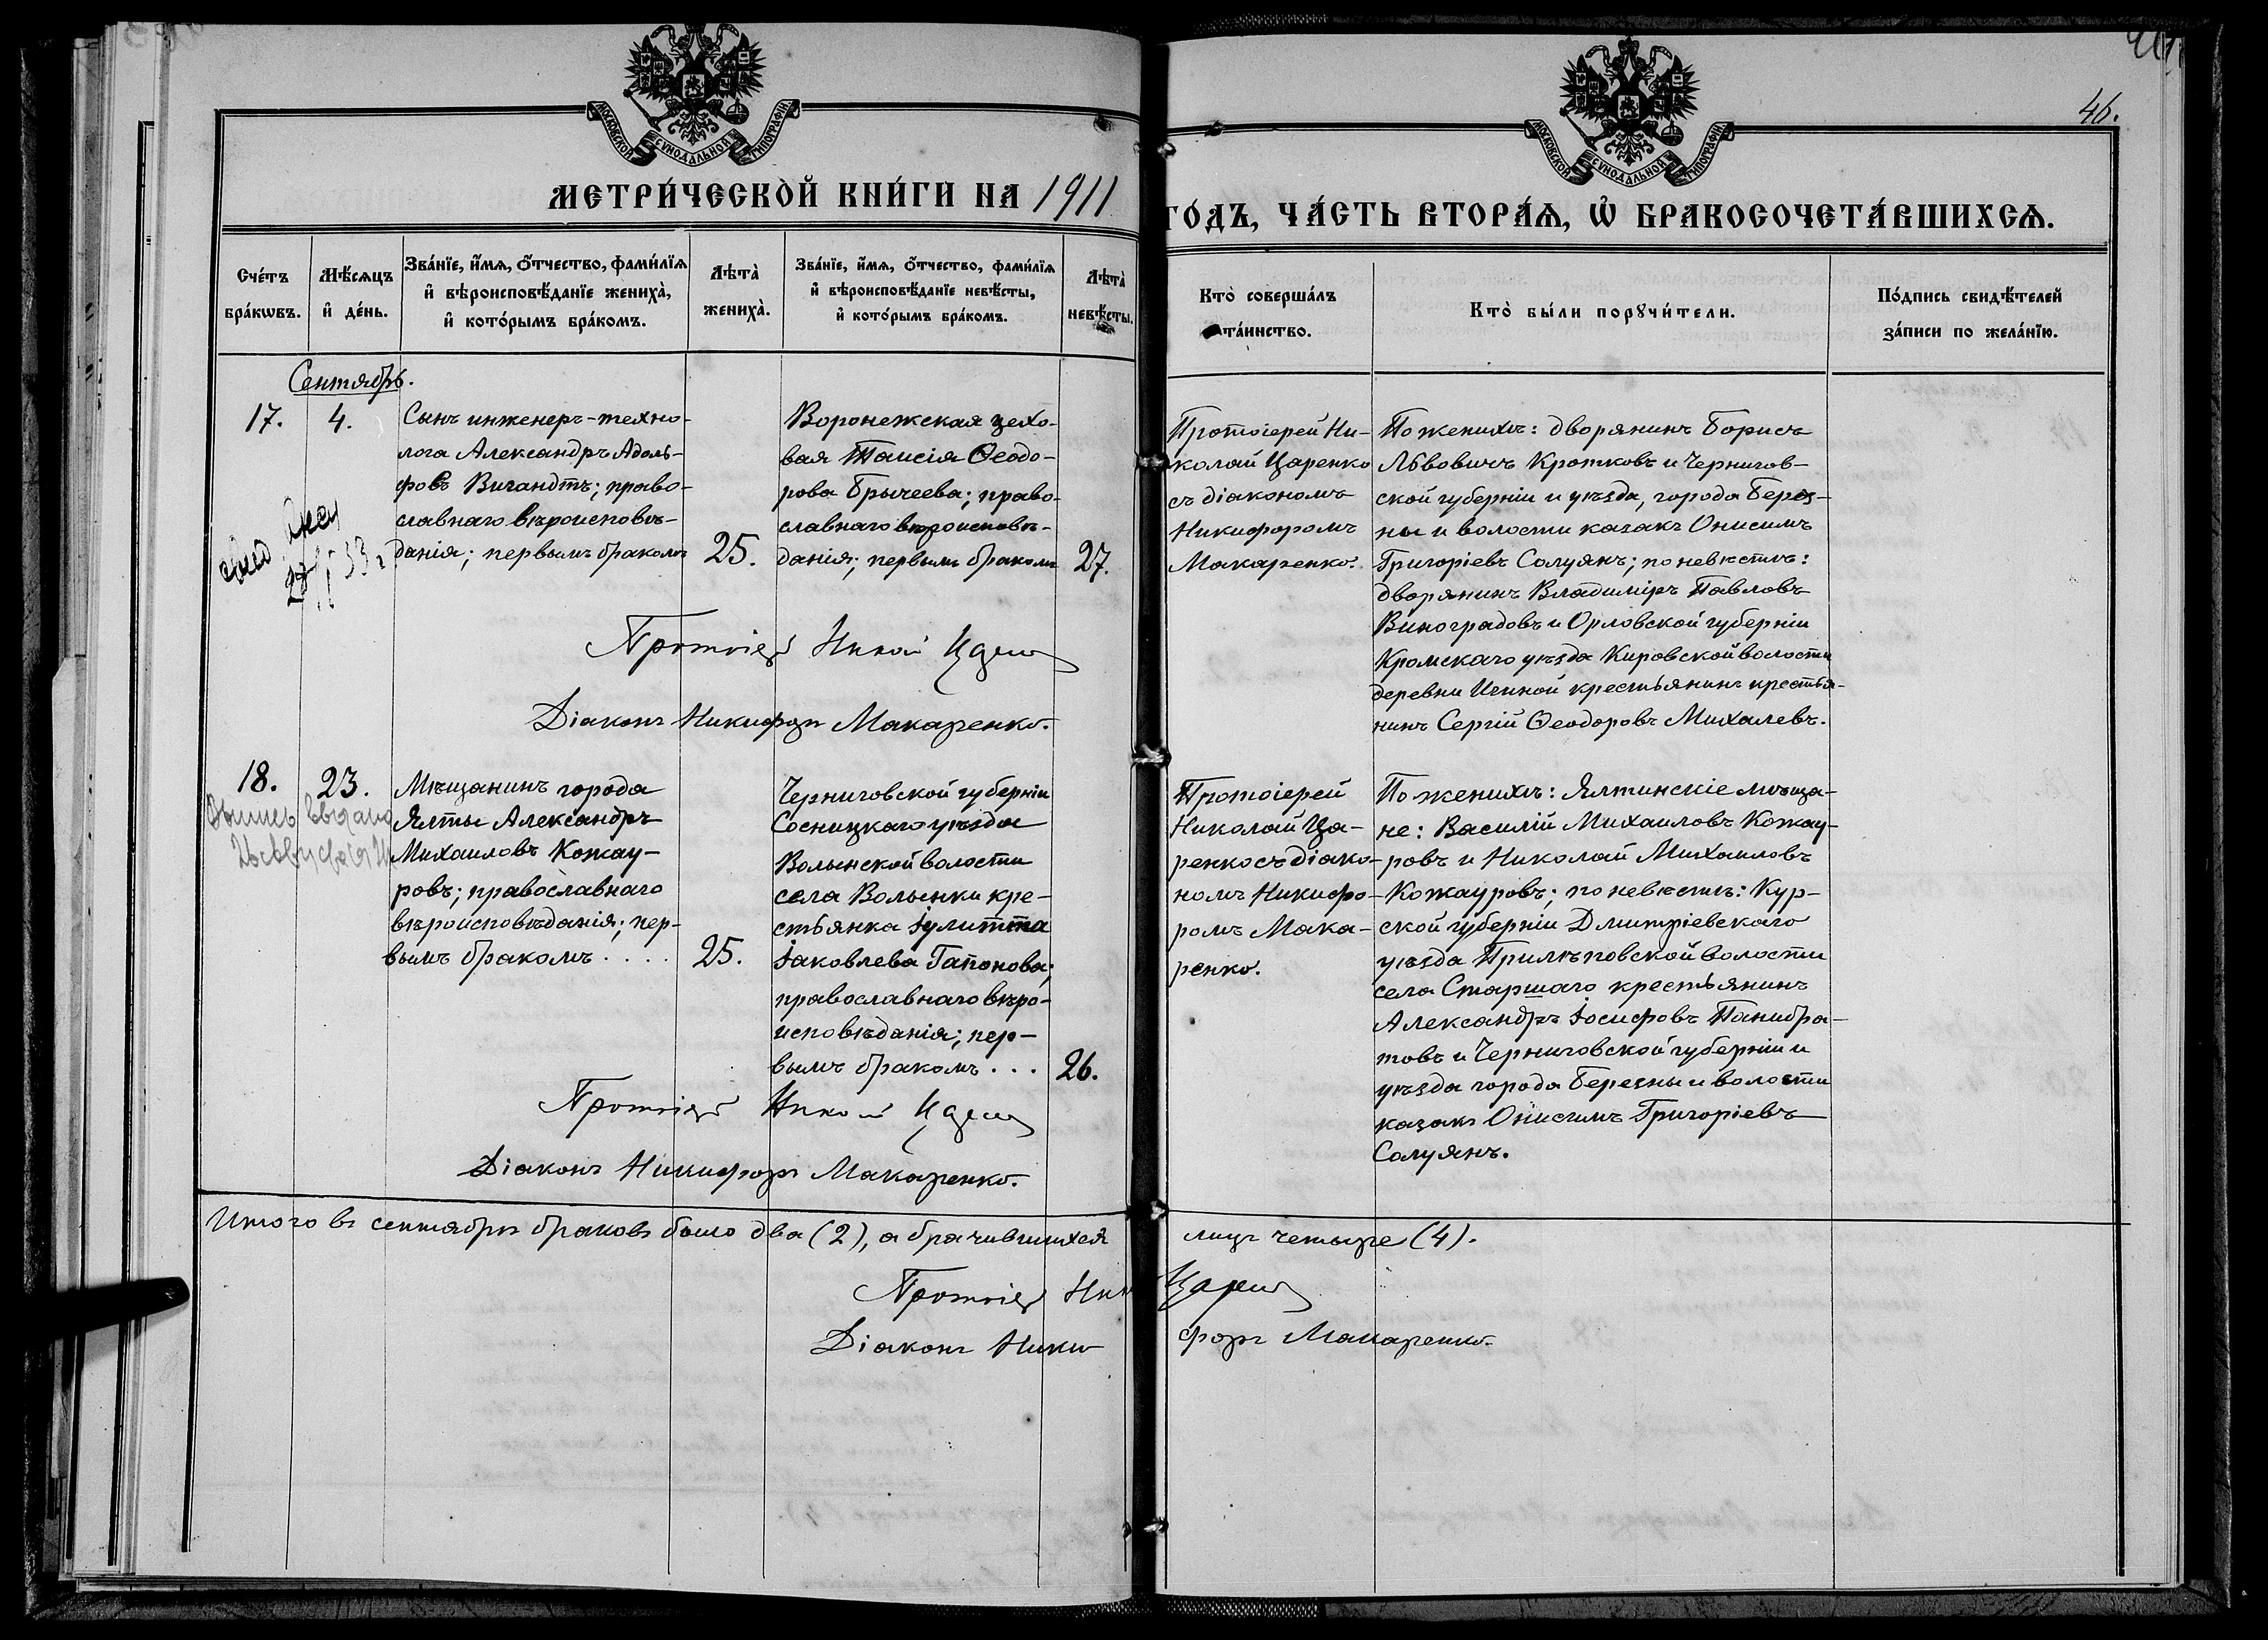 46.
МОСКОВСКОЙ СУНОДАЛЬНОЙ ТИПОГРАФІИ
МОСКОВСКОЙ СУНОДАЛЬНОЙ ТИПОГРАФІИ
МЕТРИ́ЧЕСКОЙ КНИ́ГИ НА 1911
ГО́ДЪ, ЧА́СТЬ ВТОРА́Ѧ, Ѽ БРАКОСОЧЕТА́ВШИХСѦ.
Сче́тъ бра́кѡвъ.
Мѣ́сѧцъ и҆ де́нь.
Зва́нїе, и҆́мѧ, ѻ҆́тчество, фами́лїѧ и҆ вѣроисповѣ́данїе жениха̀, и҆ кото́рымъ бра́комъ.
Лѣта̀ жениха̀.
Зва́нїе, и҆́мѧ, ѻ҆́тчество, фами́лїѧ и҆ вѣроисповѣ́данїе невѣ́сты, и҆ кото́рымъ бра́комъ.
Лѣта̀ невѣ́сты.
Кто̀ соверша́лъ та́инство.
Кто̀ бы́ли порꙋчи́тели.
По́дпись свидѣ́телей за́писи по жела́нїю.
Сентябрь.
17.
4.
Сынъ инженеръ-техно-
лога Александръ Адоль-
фовъ Вигандтъ; право-
славнаго вѣроисповѣ-
данія; первымъ бракомъ
25.
Воронежская цехо-
вая Таисія Ѳеодо-
рова Брычеева; право-
славнаго вѣроисповѣ-
данія; первымъ бракомъ
27.
Протоіерей Ни-
колай Царенко
съ діакономъ
Никифоромъ
Макаренко.
По женихѣ: дворянинъ Борисъ
Львовичъ Кротковъ и Чернигов-
ской губерніи и уѣзда, города Берез-
ны и волости казакъ Онисимъ
Григоріевъ Солуянъ; по невѣстѣ:
дворянинъ Владиміръ Павловъ
Виноградовъ и Орловской губерніи
Кромскаго уѣзда Кировской волости
деревни крестьянинъ крестья-
нинъ Сергій Ѳеодоровъ Михалевъ.
Протоіер Никол Царен
Діаконъ Никифоръ Макаренко.
18.
23.
Мѣщанинъ города
Ялты Александръ
Михаиловъ Кожау-
ровъ; православнаго
вѣроисповѣданія; пер-
вымъ бракомъ . . . .
25.
Черниговской губерніи
Сосницкаго уѣзда
Волынской волости
села Волынки кре-
стьянка Іулитта
Іаковлева Гапонова;
православнаго вѣро-
исповѣданія; пер-
вымъ бракомъ . . .
26.
Протоіерей
Николай Ца-
ренко съ діако-
номъ Никифо-
ромъ Мака-
ренко.
По женихѣ: Ялтинскіе мѣща-
не: Василій Михаиловъ Кожау-
ровъ и Николай Михаиловъ
Кожауровъ; по невѣстѣ: Кур-
ской губерніи Дмитріевскаго
уѣзда Прилѣповской волости
села Старшаго крестьянинъ
Александръ Іосифовъ Панибра-
товъ и Черниговской губерніи и
уѣзда города Березны и волости
казакъ Онисимъ Григоріевъ
Солуянъ.
Протоіер Никол Царен
Діаконъ Никифоръ Макаренко.
Итого въ сентябрѣ браковъ было два (2), а брачившихся лицъ четыре (4).
Протоіер Ник Царен
Діаконъ Никифоръ Макаренко.